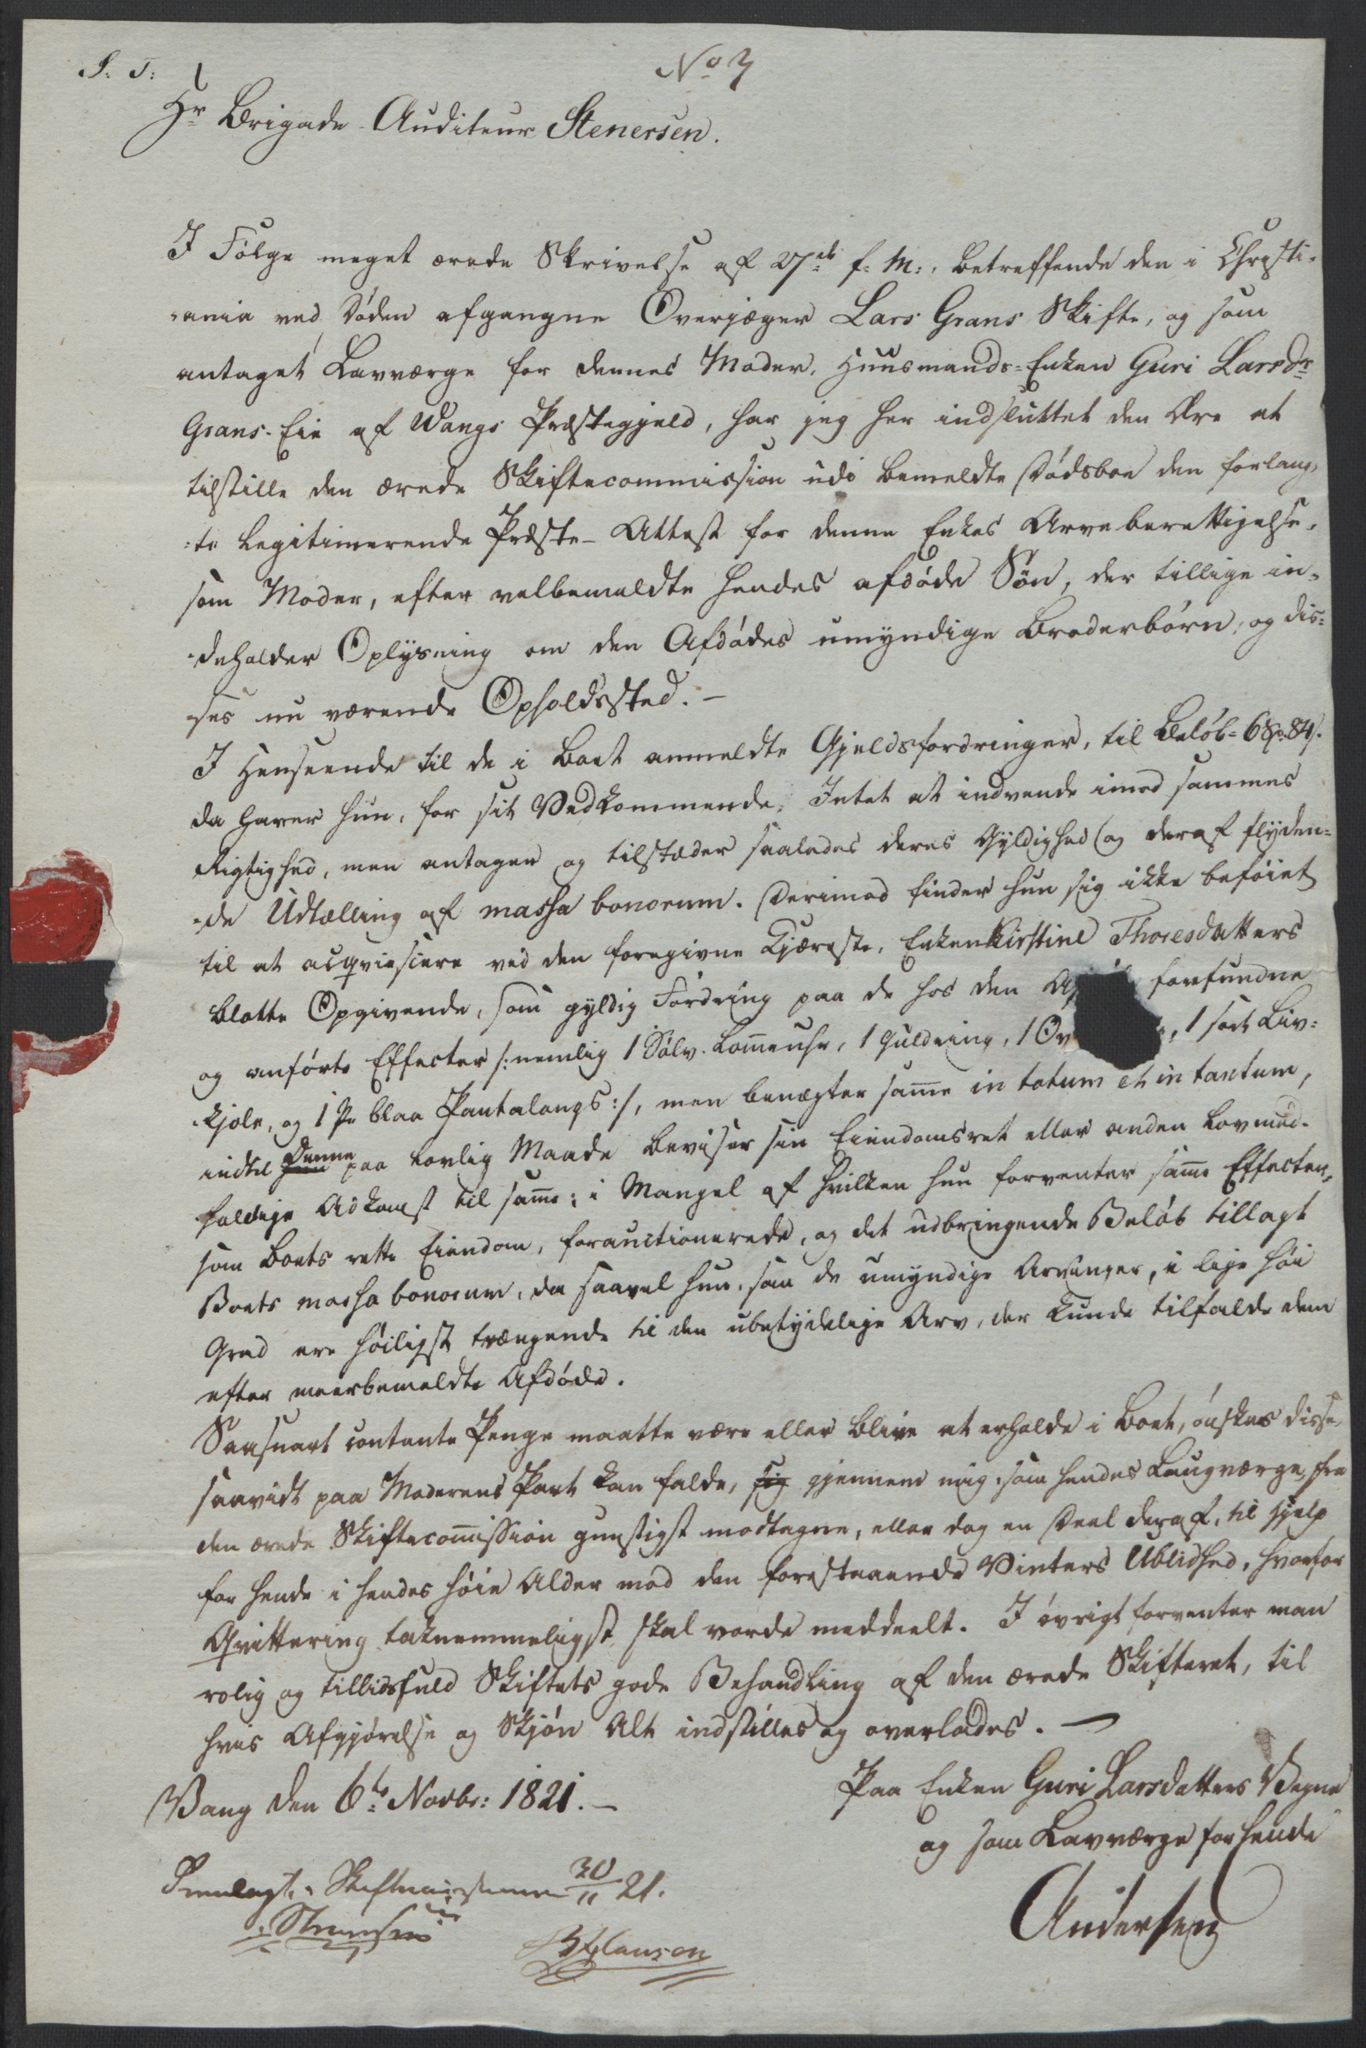 S. T.
No 7
Hr Brigade-Auditeur Stenersen.
I Følge meget ærede Skrivelse af 27de f. M., betreffende den i Christi-
-ania ved Døden afgangne Overjæger Lars Grans Skifte, og som
antaget Lavværge for dennes Moder, Huusmands-Enken Guri Larsdr
Grans-Eie af Wangs Præstegjeld, har jeg her indsluttet den Ære at
tilstille den ærede Skiftecommission udi bemeldte Dødsboe den forlang-
-te legitimerende Præste-Attest for denne Enkes Arveberettigelse,
som Moder, efter velbemeldte hendes afdøde Søn, der tillige in-
-deholder Oplysning om den Afdødes umyndige Broderbørn, og dis-
-ses nu værende Opholdssted. –
I Henseende til de i Boet anmeldte Gjeldsfordringer, til Beløb 6 Sp. 84 s.
da haver hun, for sit Vedkommende, Intet at indvende imod sammes
Rigtighed, men antager og tilstæder saaledes deres Gyldighed (og deraf flyden-
-de Udtælling af massa bonorum. Derimod finder hun sig ikke beføiet
til at acqviesiere ved den foregivne Kjæreste, Enken Kirstine Thoresdatters
blotte Opgivende, som gyldig Fordring paa de hos den forefundne
og anførte Effecter /: nemlig 1 Sølv-Lommeuhr, 1 Guldring, 1 Ov , 1 sort Liv-
-kjole, og 1 Pr blaa Pantalongs :/, men benægter samme in totum et in tantum,
indtil Denne paa lovlig Maade beviser sin Eiendomsret eller anden lovmed-
holdige Adkomst til samme; i Mangel af hvilken hun forventer samme Effecter,
som Boets rette Eiendom, forauctionerede, og det udbringende Beløb tillagt
Boets massa bonorum, da saavel hun, som de umyndige Arvinger, i lige høi
Grad ere høiligst trængende til den ubetydelige Arv, der kunde tilfalde dem
efter meerbemeldte Afdøde.
Saasnart contante Penge maatte være eller blive at erholde i Boet, ønskes disse,
saavidt paa Moderens Part kan falde, sig gjennem mig, som hendes Laugværge, fra
den ærede Skiftecommission gunstigst modtagne, eller dog en Deel deraf, til Hjelp
for hende i hendes høie Alder mod den forestaaende Vinters Ublidhed, hvorfor
Qvittering taknemmeligst skal vorde meddeelt. I øvrigt forventer man
rolig og tillidsfuld Skiftets gode Behandling af den ærede Skifteret, til
hvis Afgjørelse og Skjøn Alt indstilles og overlades. –
Vang den 6te Novbr: 1821. –
Paa Enken Guri Larsdatters Vegne
og som Lavværge for hende
Andersen
Fremlagt i 30/11 21.
Stenersen
Hansen